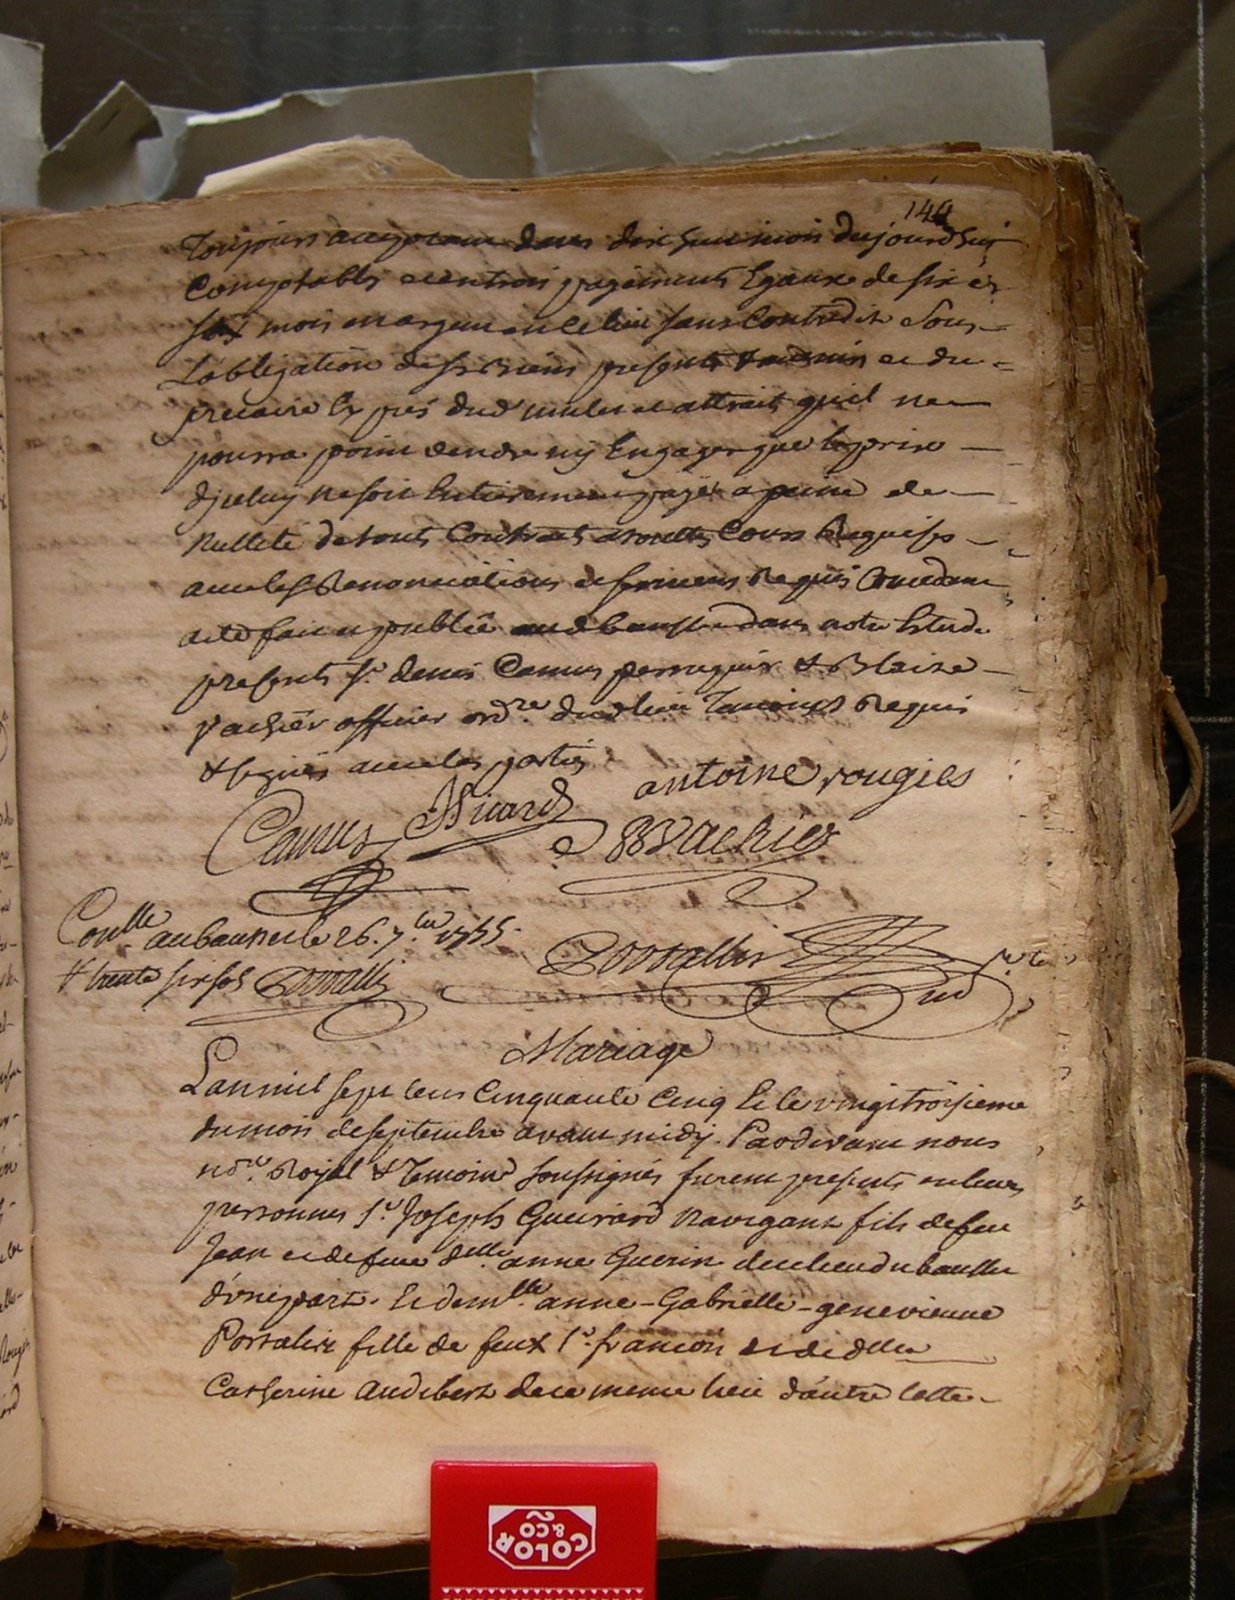 140
Toujours acceptant dans dix huit mois dujourdhuy
Comptables et en trois payements Egaux de six en
six mois en argent en ce lieu sans Contredit Sous
Lobligation de ses Biens presents & avenir et du
precaire Expres dud mulet et attrait quil ne
pourra point vendre ny Engager que le prix
diceluy ne soit Entierement payé a peine de
Nullité de tous Contrats a touttes Cours Requises
avec les Renonciations et serments Requis Concedant
acte fait et publié au dBausset dans notre Etude
presents Sr. denis Camus perruquier & Blaise
Vachier officier ordre. dud lieu Temoins Requis
& signés avec les parties
antoine rougies
Camus Sicard
BVachier
Conlle au bausset le 26. 7.bre 1755.
& trente six sols Portallis
Portallis
nd
Mariage
Lan mil sept cens Cinquante Cinq Et le vingt troisieme
du mois de septembre avant midy. Pardevant nous
nore. Royal & Temoins soussignés furent presents en leurs
personnes Sr. Joseph Gueirard Navigant fils de feu
Jean et de feue dlle. anne Guerin de ce lieu du bausset
d'une part. Et demlle. anne-Gabrielle-genevienne
Portalis fille de feux Sr. francois et de dlle
Catherine Audibert de ce meme lieu d'autre Cette
COLOR
& CO